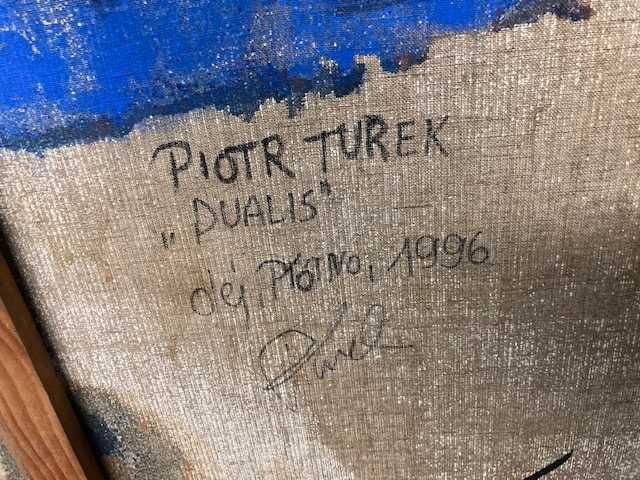 PIOTR TUREK
„DUALIS"
olej, PŁÓTNO, 1996
Turek